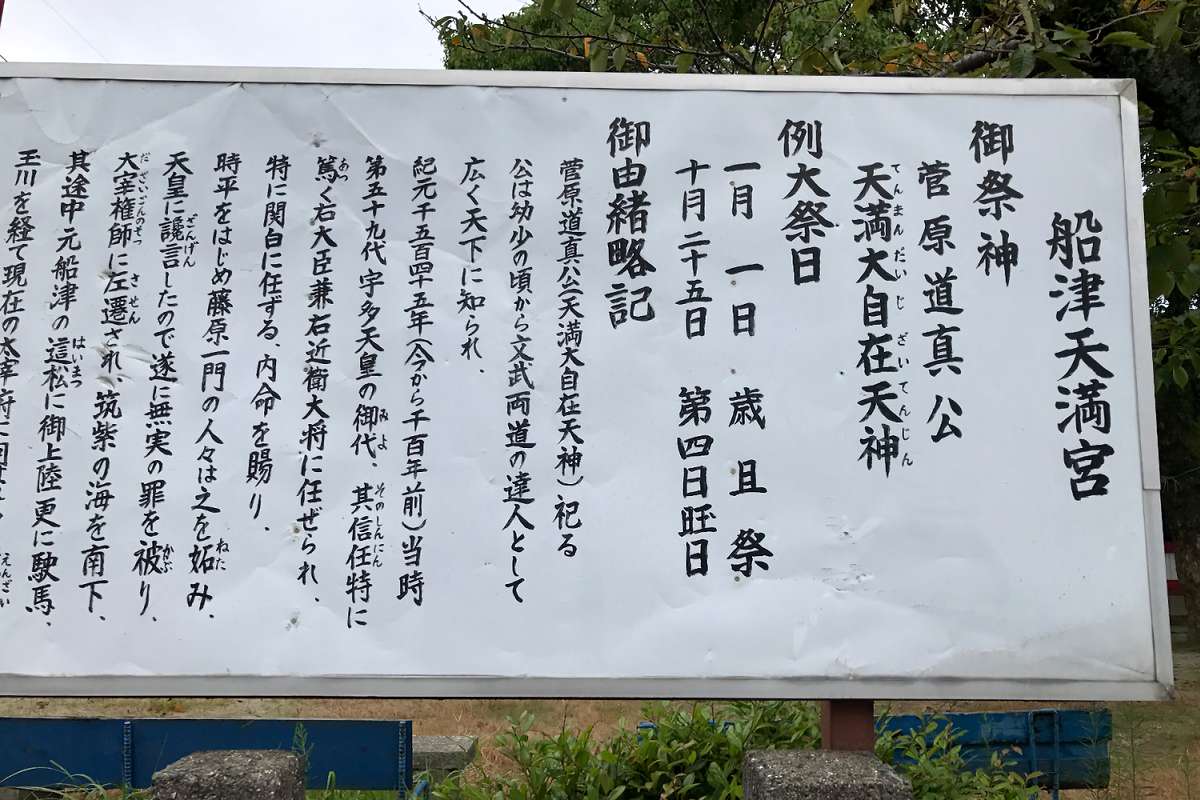 船津天満宮
御祭神
菅原道真公
天満大自在天神
てんまんだいじざいてんじん
例大祭日
一月一日 歳旦祭
十月二十五日 第四日旺日
御由緒略記
菅原道真公(天満大自在天神)祀る
公は幼少の頃から文武両道の達人として
広く天下に知られ、
紀元千五百四十五年(今から千百年前)当時
第五十九代宇多天皇の御代、其信任特に
みよ そのしんにん
篤く右大臣兼右近衛大将に任ぜられ、
あつ
特に関白に任ずる、内命を賜り、
時平をはじめ藤原一門の人々は之を妬み、
ねた
天皇に讒言したので遂に無実の罪を被り、
ざんげん かぶ
大宰権師に左遷され、筑紫の海を南下、
だざいごんのそつ させん
其途中元船津の這松に御上陸更に駛馬、
はいまつ
玉川を経て現在の太宰府に
えんざい